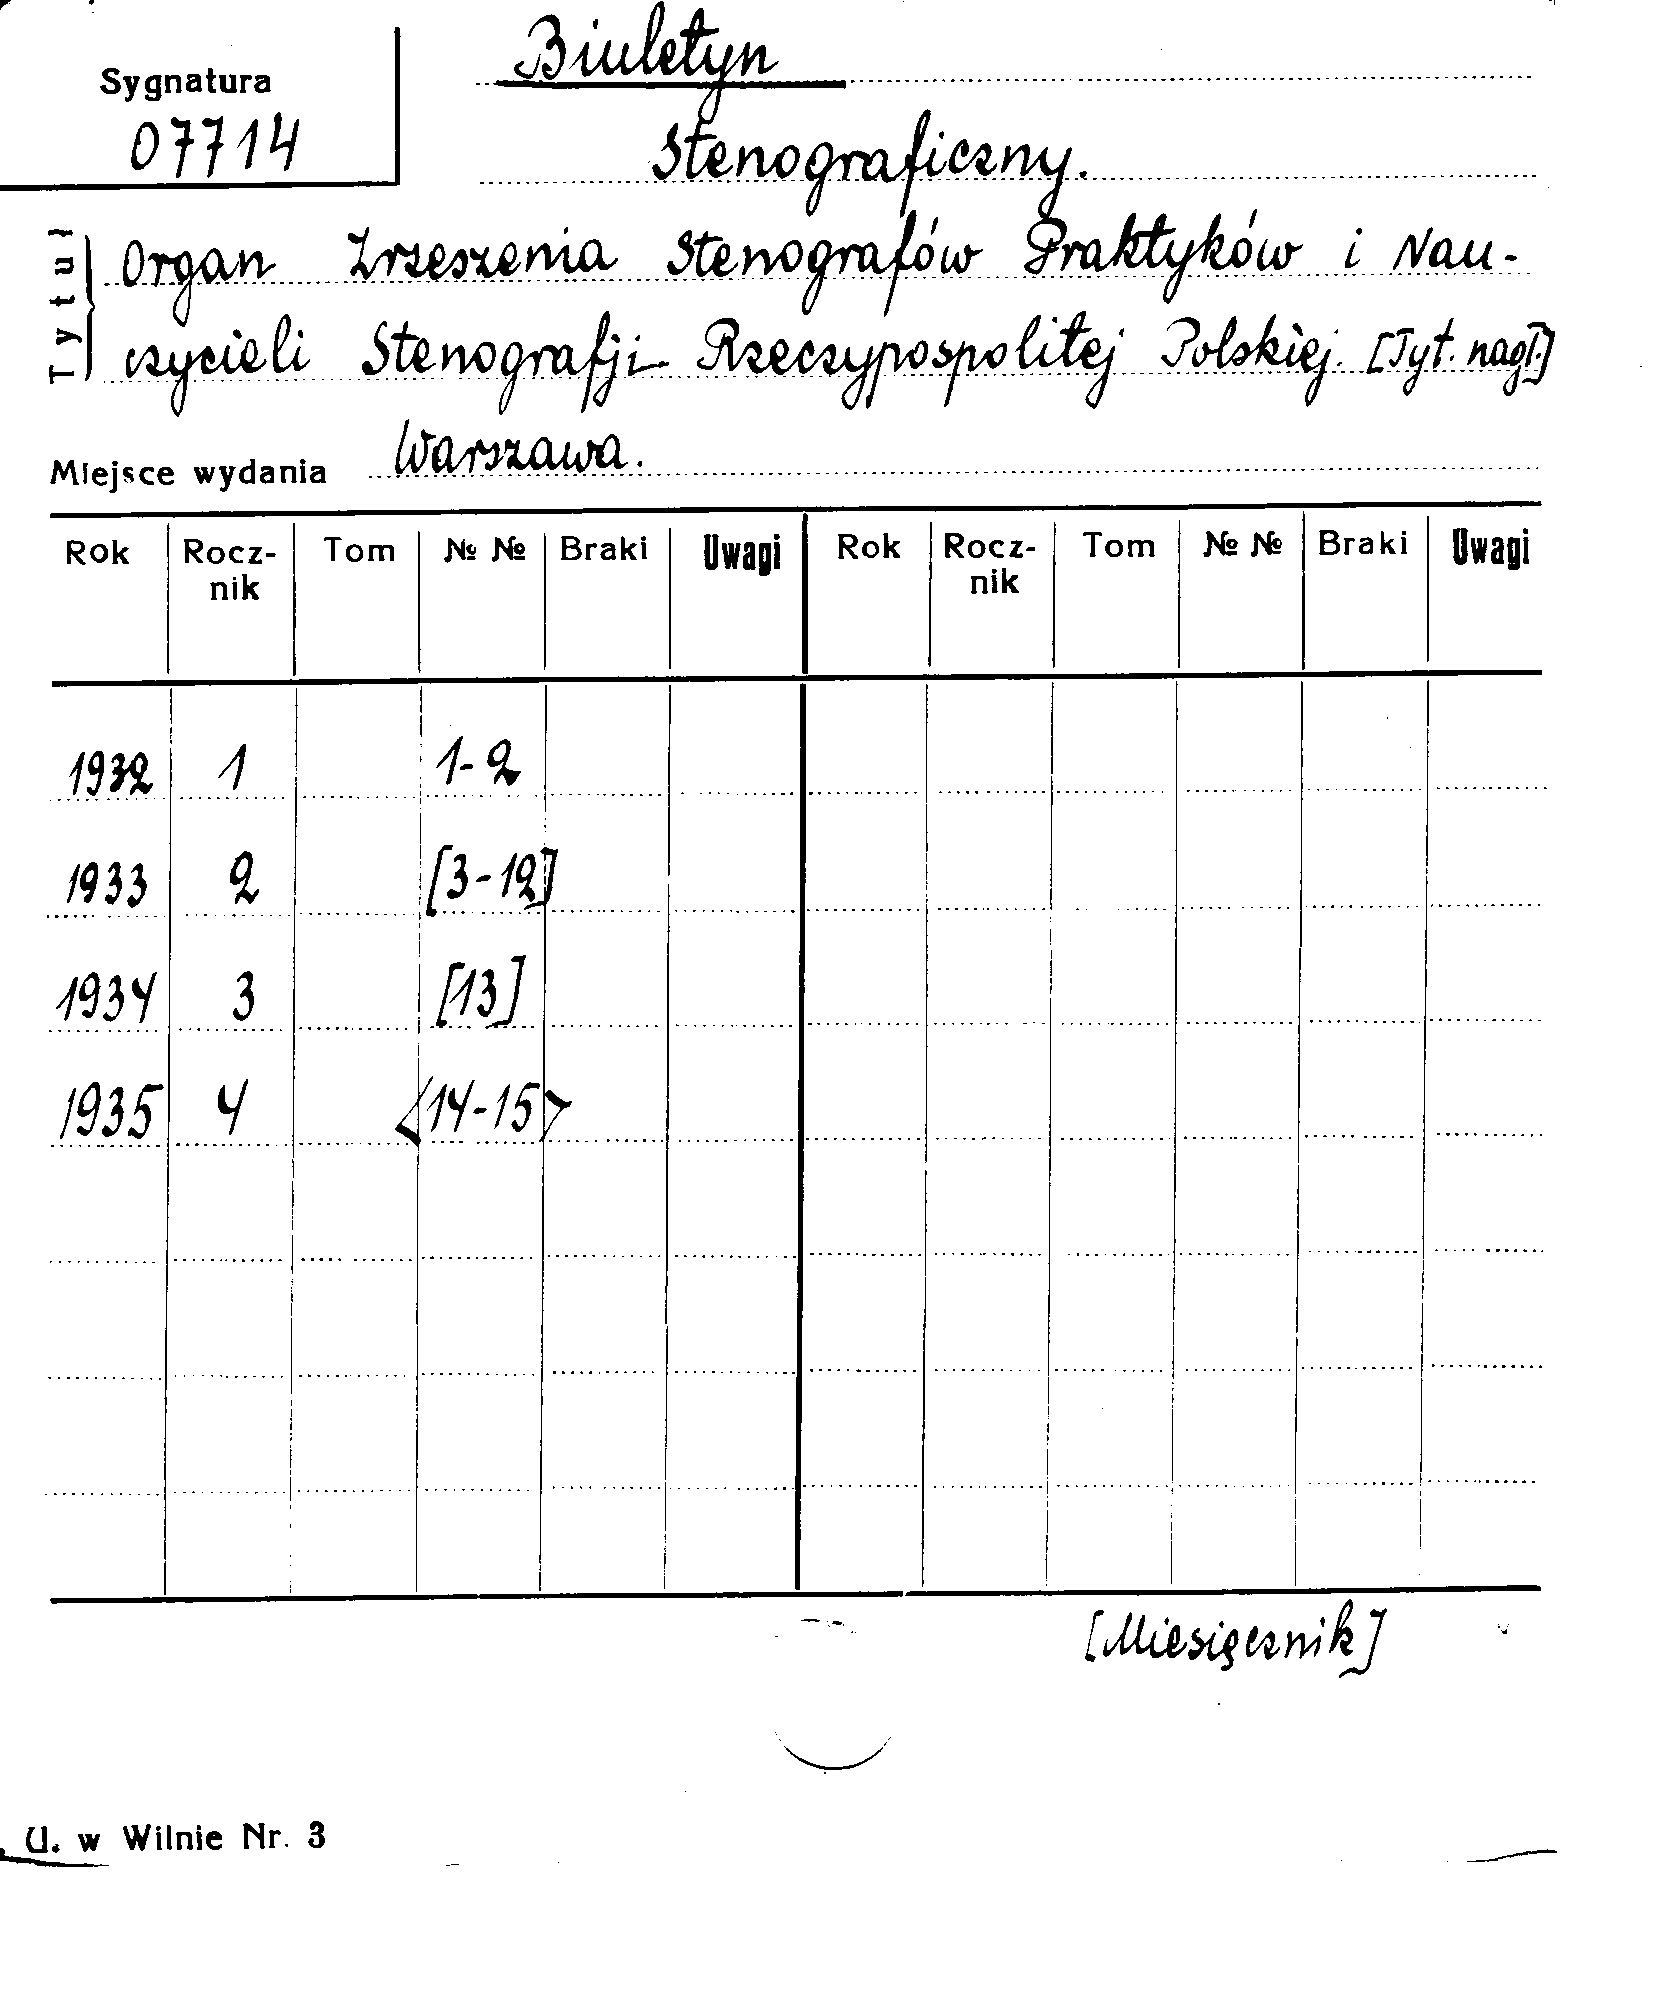 Biuletyn
Sygnatura
07714
Stenograficzny.
Tytuł
Organ Zrzeszenia Stenografów Praktyków i Nau-
czycieli Stenografji Rzeczypospolitej Polskiej. [Tyt. nagł.]
Miejsce wydania Warszawa.
Rok Rocz- Tom № № Braki Uwagi Rok Rocz- Tom № № Braki Uwagi
nik nik
1932 1 1-2
1933 2 [3-12]
1934 3 [13]
1935 4 <14-15>
[Miesięcznik]
U. w Wilnie Nr. 3